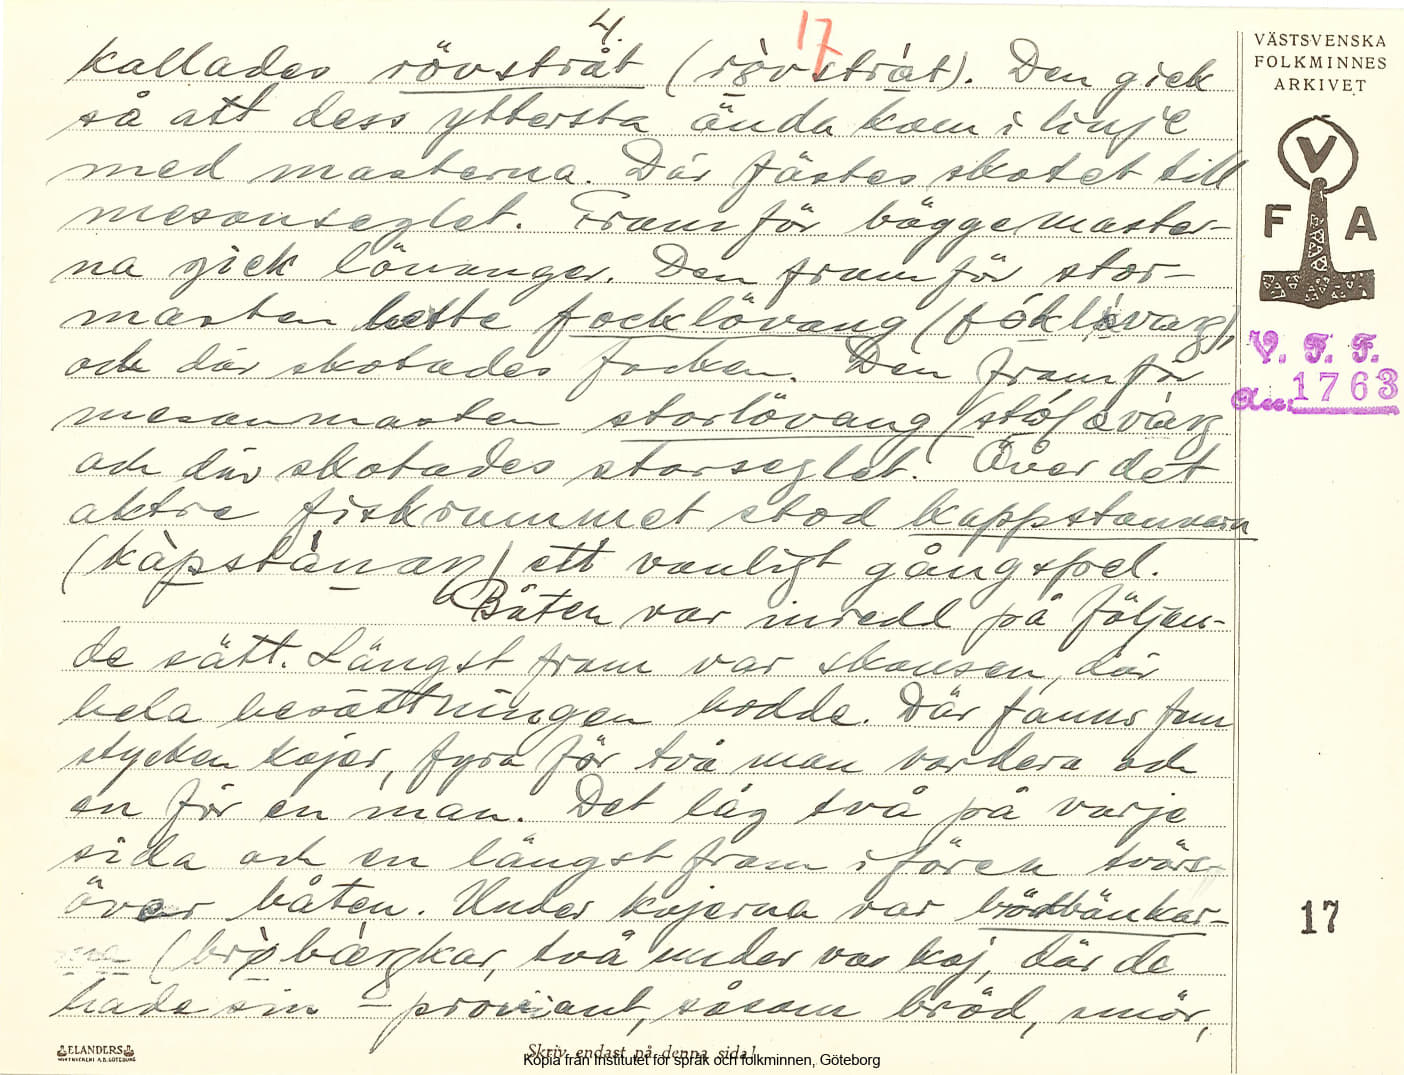 4.
17
kallades rövstråt (rö̀vstrát). Den gick
så att dess yttersta ända kom i linje
med masterna. Där fästes skotet till
mesanseglet. Framför bägge master-
na gick lövanger. Den framför stor-
masten hette focklövang (
och där skotades focken. Den framför
mesanmasten storlövang (
och där skotades storseglet. Över det
aktre fiskrummet stod kappstannarn
(kàpstánan) ett vanligt gångspel.
Båten var inredd på följan-
de sätt. Längst fram var skansen, där
hela besättningen bodde. Där fanns fem
stycken kojer, fyra för två man vardera och
en för en man. Det låg två på varje
sida och en längst fram i fören tvärs-
över båten. Under kojerna var brödbänkar-
na (
två under var koj, där de
hade sin – proviant, såsom bröd, smör,
VÄSTSVENSKA
FOLKMINNES
ARKIVET
V
F A
V. F. F.
Acc: 1763
17
ELANDERS
Skriv endast på denna sida!
Kopia från Institutet för språk och folkminnen, Göteborg